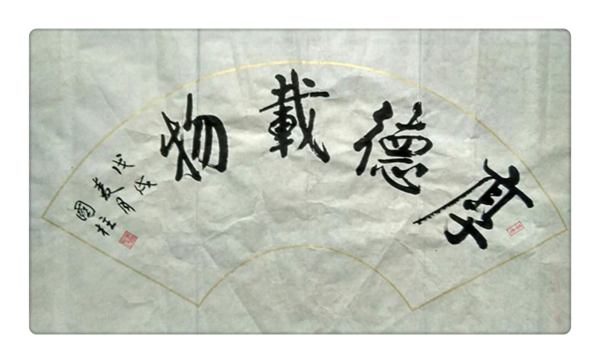 厚德載物
戊戌
麦月
國柱